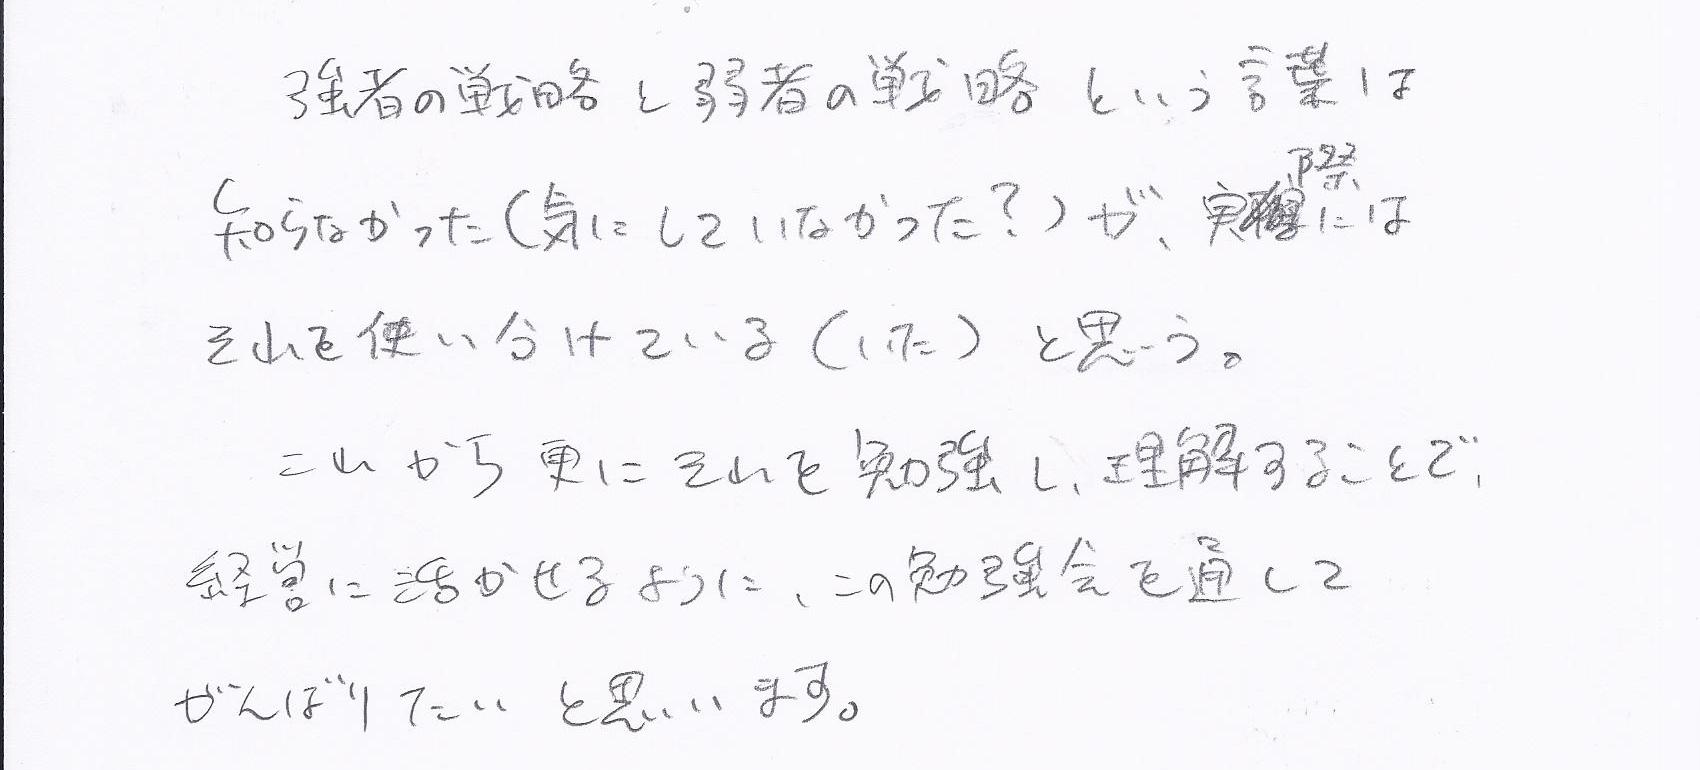 強者の戦略と弱者の戦略という言葉は
知らなかった(気にしていなかった?)が、実際には
それを使い分けている(いた)と思う。
これから更にそれを勉強し、理解することで、
経営に活かせるように、この勉強会を通して
がんばりたいと思います。